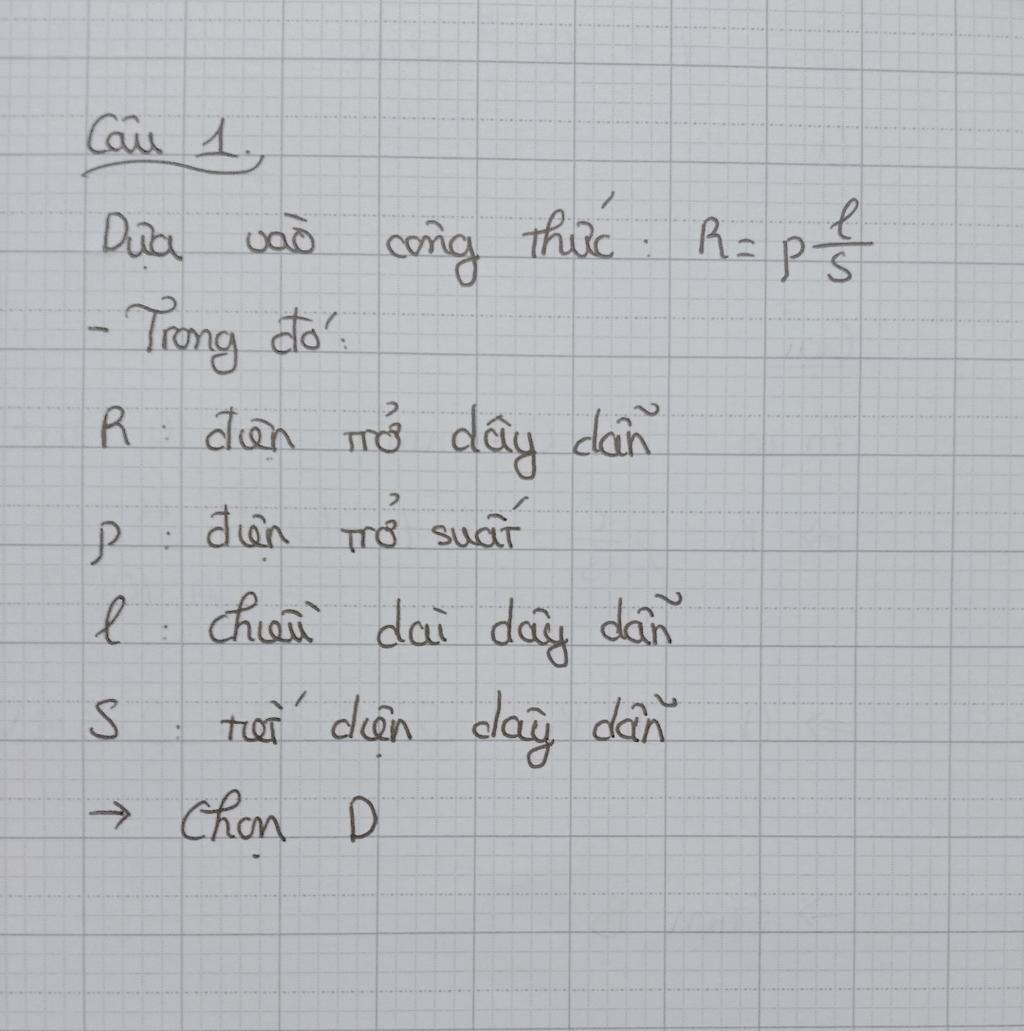 Câu 1.
Dựa vào công thức: R = ρ l/S
- Trong đó:
R : điện trở dây dẫn
ρ : điện trở suất
l : chiều dài dây dẫn
S : tiết diện dây dẫn
→ Chọn D